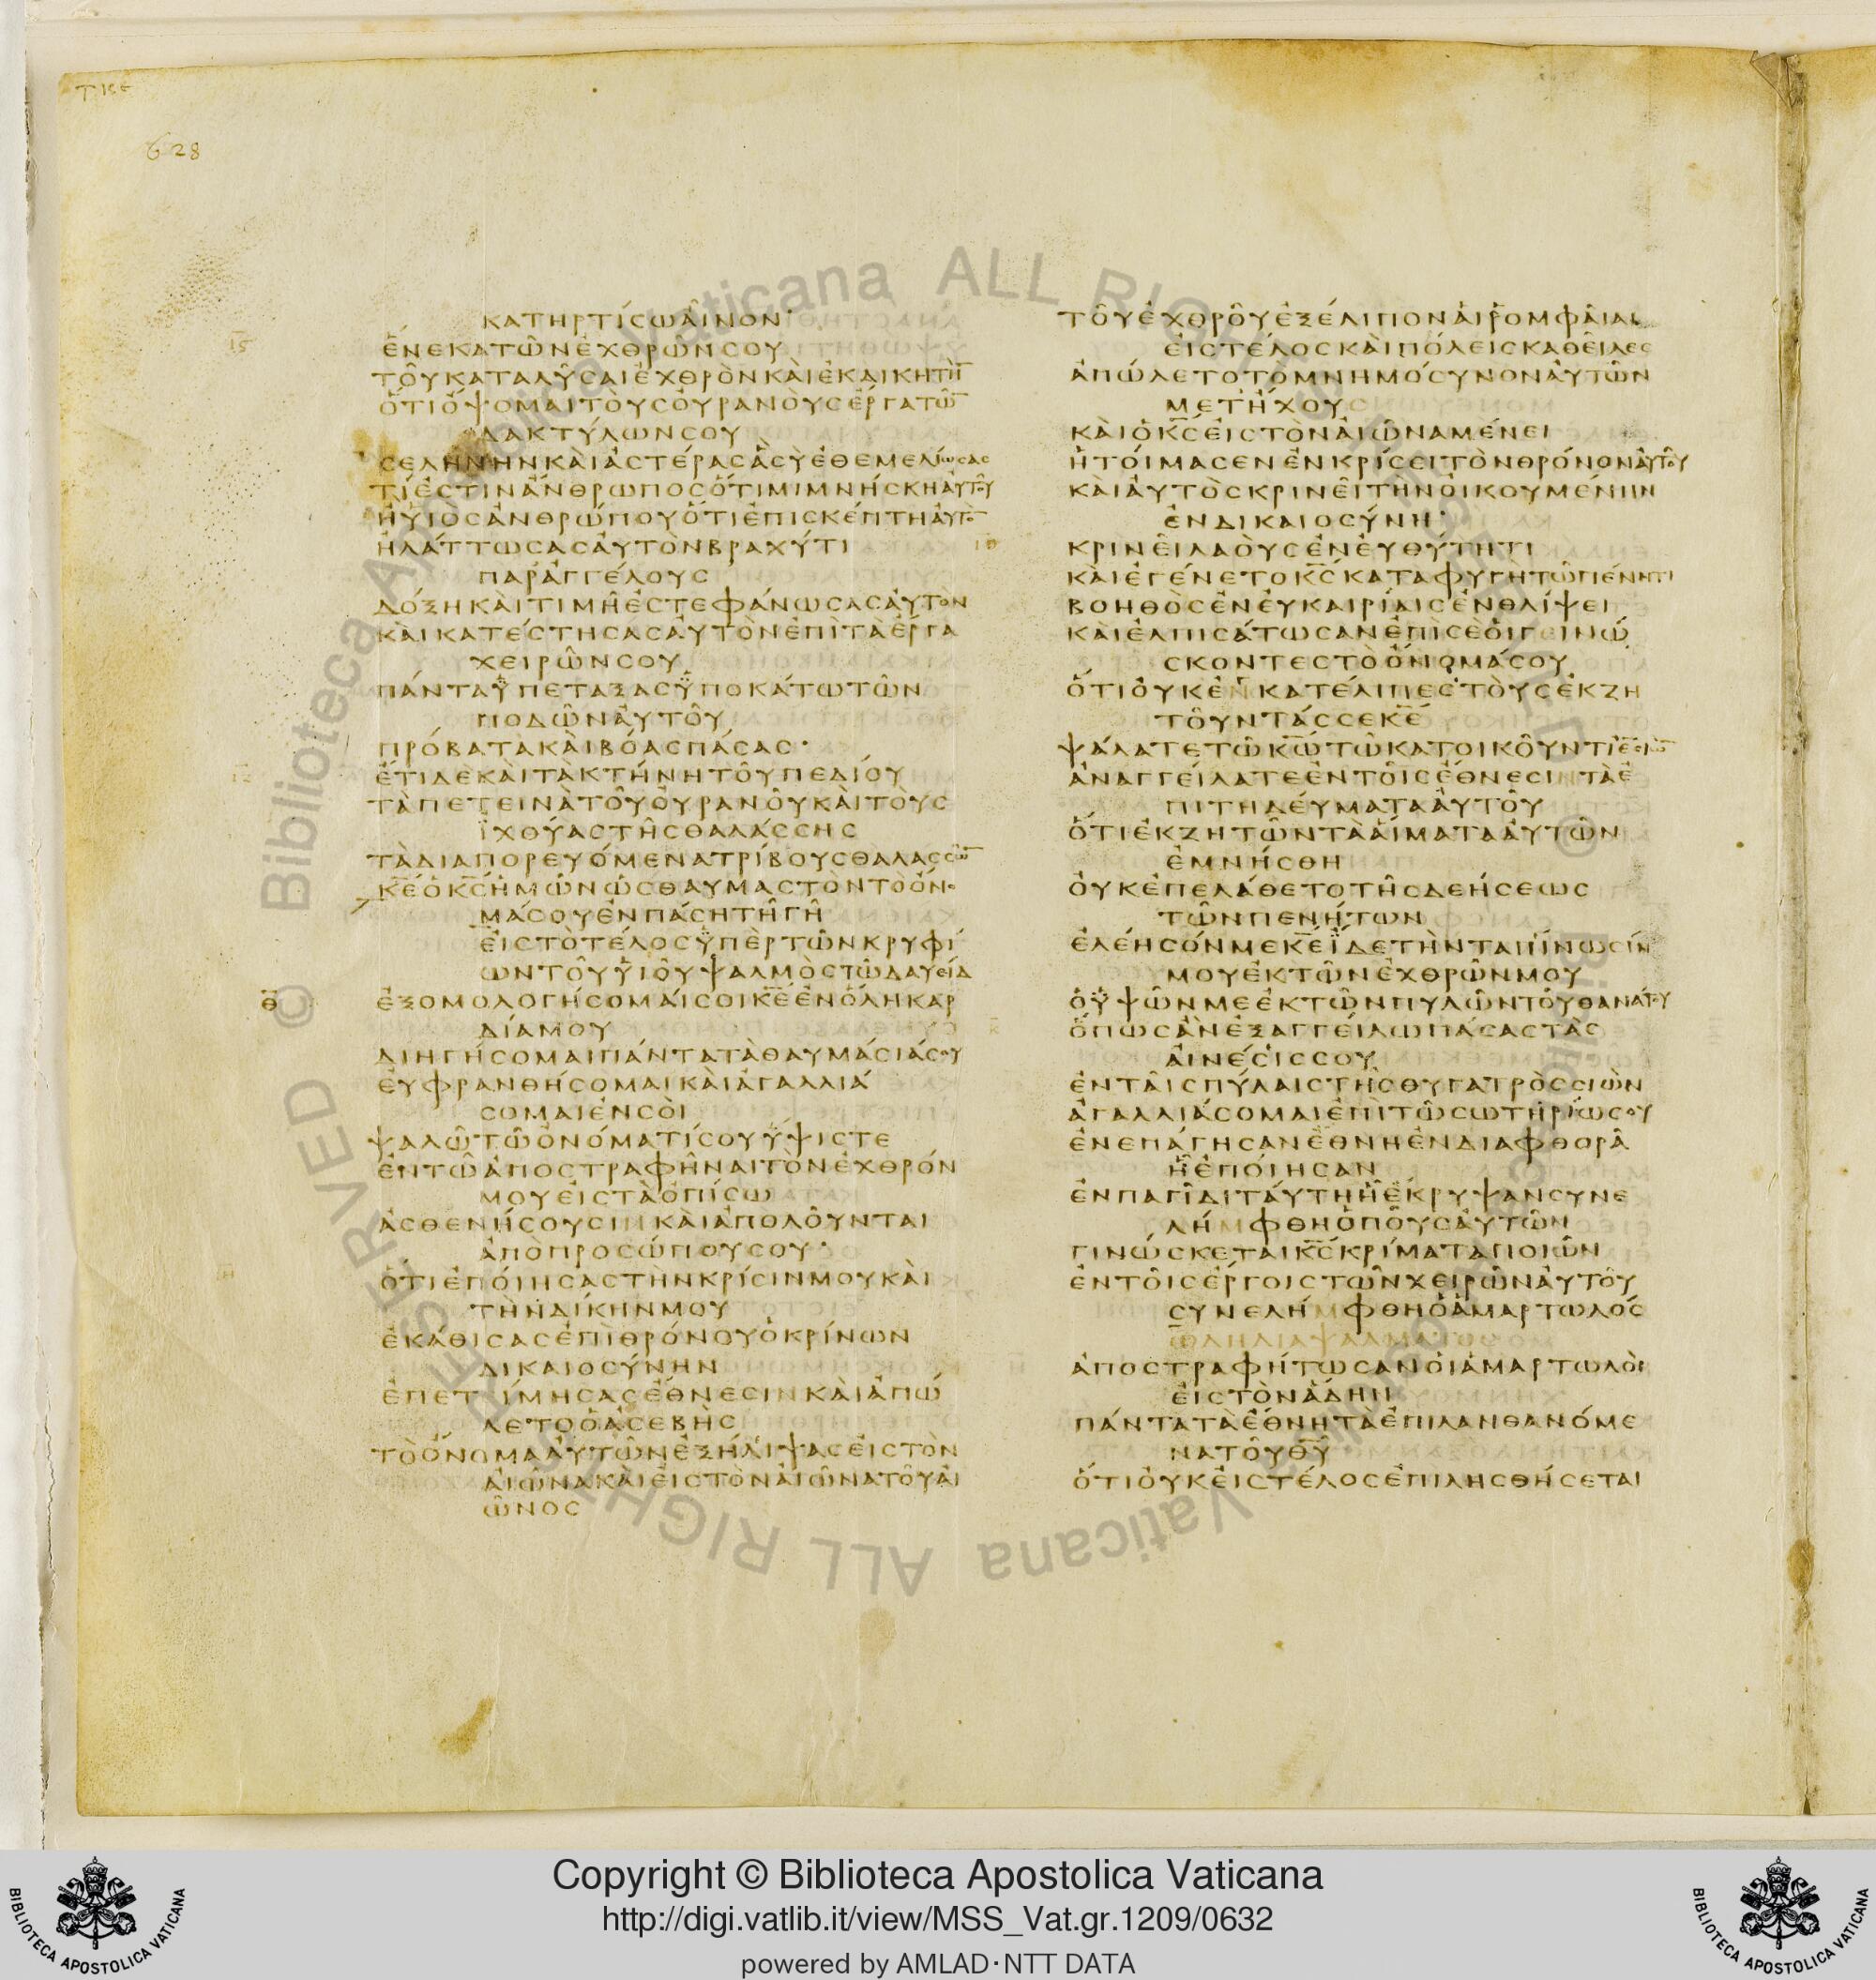 ΤΚΕ
628
ΚΑΤΗΡΤΙΣΩΑΙΝΟΝ·
ΕΝΕΚΑΤΩΝΕΧΘΡΩΝΣΟΥ
ΤΟΥΚΑΤΑΛΥΣΑΙΕΧΘΡΟΝΚΑΙΕΚΔΙΚΗΤΗ̅
ΟΤΙΟΨΟΜΑΙΤΟΥΣΟΥΡΑΝΟΥΣΕΡΓΑΤΩ̅
ΔΑΚΤΥΛΩΝΣΟΥ
ΣΕΛΗΝΗΝΚΑΙΑΣΤΕΡΑΣΑΣΥΕΘΕΜΕΛΙΩΣΑΣ
ΤΙΕΣΤΙΝΑΝΘΡΩΠΟΣΟΤΙΜΙΜΝΗΣΚΗΑΥΤΟΥ
ΗΥΙΟΣΑΝΘΡΩΠΟΥΟΤΙΕΠΙΣΚΕΠΤΗΑΥΤΟ̅
ΗΛΑΤΤΩΣΑΣΑΥΤΟΝΒΡΑΧΥΤΙ
ΠΑΡΑΓΓΕΛΟΥΣ
ΔΟΞΗΚΑΙΤΙΜΗΕΣΤΕΦΑΝΩΣΑΣΑΥΤΟΝ
ΚΑΙΚΑΤΕΣΤΗΣΑΣΑΥΤΟΝΕΠΙΤΑΕΡΓΑ
ΧΕΙΡΩΝΣΟΥ
ΠΑΝΤΑΥΠΕΤΑΞΑΣΥΠΟΚΑΤΩΤΩΝ
ΠΟΔΩΝΑΥΤΟΥ
ΠΡΟΒΑΤΑΚΑΙΒΟΑΣΠΑΣΑΣ·
ΕΤΙΔΕΚΑΙΤΑΚΤΗΝΗΤΟΥΠΕΔΙΟΥ
ΤΑΠΕΤΕΙΝΑΤΟΥΟΥΡΑΝΟΥΚΑΙΤΟΥΣ
ΙΧΘΥΑΣΤΗΣΘΑΛΑΣΣΗΣ
ΤΑΔΙΑΠΟΡΕΥΟΜΕΝΑΤΡΙΒΟΥΣΘΑΛΑΣΣΩ̅
Κ̅Ε̅ΟΚ̅Σ̅ΗΜΩΝΩΣΘΑΥΜΑΣΤΟΝΤΟΟΝΟ
ΜΑΣΟΥΕΝΠΑΣΗΤΗΓΗ
ΕΙΣΤΟΤΕΛΟΣΥΠΕΡΤΩΝΚΡΥΦΙ
ΩΝΤΟΥΥΙΟΥΨΑΛΜΟΣΤΩΔΑΥΕΙΔ
Θ̅ ΕΞΟΜΟΛΟΓΗΣΟΜΑΙΣΟΙΚ̅Ε̅ΕΝΟΛΗΚΑΡ
ΔΙΑΜΟΥ
ΔΙΗΓΗΣΟΜΑΙΠΑΝΤΑΤΑΘΑΥΜΑΣΙΑΣΟΥ
ΕΥΦΡΑΝΘΗΣΟΜΑΙΚΑΙΑΓΑΛΛΙΑ
ΣΟΜΑΙΕΝΣΟΙ
ΨΑΛΩΤΩΟΝΟΜΑΤΙΣΟΥΥΨΙΣΤΕ
ΕΝΤΩΑΠΟΣΤΡΑΦΗΝΑΙΤΟΝΕΧΘΡΟΝ
ΜΟΥΕΙΣΤΑΟΠΙΣΩ
ΑΣΘΕΝΗΣΟΥΣΙΝΚΑΙΑΠΟΛΟΥΝΤΑΙ
ΑΠΟΠΡΟΣΩΠΟΥΣΟΥ·
ΟΤΙΕΠΟΙΗΣΑΣΤΗΝΚΡΙΣΙΝΜΟΥΚΑΙ
ΤΗΝΔΙΚΗΝΜΟΥ
ΕΚΑΘΙΣΑΣΕΠΙΘΡΟΝΟΥΟΚΡΙΝΩΝ
ΔΙΚΑΙΟΣΥΝΗΝ
ΕΠΕΤΙΜΗΣΑΣΕΘΝΕΣΙΝΚΑΙΑΠΩ
ΛΕΤΟΟΑΣΕΒΗΣ
ΤΟΟΝΟΜΑΑΥΤΩΝΕΞΗΛΙΨΑΣΕΙΣΤΟΝ
ΑΙΩΝΑΚΑΙΕΙΣΤΟΝΑΙΩΝΑΤΟΥΑΙ
ΩΝΟΣ
ΤΟΥΕΧΘΡΟΥΕΞΕΛΙΠΟΝΑΙΡΟΜΦΑΙΑΙ
ΕΙΣΤΕΛΟΣΚΑΙΠΟΛΕΙΣΚΑΘΕΙΛΕΣ
ΑΠΩΛΕΤΟΤΟΜΝΗΜΟΣΥΝΟΝΑΥΤΩΝ
ΜΕΤΗΧΟΥ
ΚΑΙΟΚ̅Σ̅ΕΙΣΤΟΝΑΙΩΝΑΜΕΝΕΙ
ΗΤΟΙΜΑΣΕΝΕΝΚΡΙΣΕΙΤΟΝΘΡΟΝΟΝΑΥΤΟΥ
ΚΑΙΑΥΤΟΣΚΡΙΝΕΙΤΗΝΟΙΚΟΥΜΕΝΗΝ
ΕΝΔΙΚΑΙΟΣΥΝΗ·
ΚΡΙΝΕΙΛΑΟΥΣΕΝΕΥΘΥΤΗΤΙ
ΚΑΙΕΓΕΝΕΤΟΚ̅Σ̅ΚΑΤΑΦΥΓΗΤΩΠΕΝΗΤΙ
ΒΟΗΘΟΣΕΝΕΥΚΑΙΡΙΑΙΣΕΝΘΛΙΨΕΙ
ΚΑΙΕΛΠΙΣΑΤΩΣΑΝΕΠΙΣΕΟΙΓΕΙΝΩ
ΣΚΟΝΤΕΣΤΟΟΝΟΜΑΣΟΥ
ΟΤΙΟΥΚΕΝΚΑΤΕΛΙΠΕΣΤΟΥΣΕΚΖΗ
ΤΟΥΝΤΑΣΣΕΚ̅Ε̅
ΨΑΛΑΤΕΤΩΚ̅Ω̅ΤΩΚΑΤΟΙΚΟΥΝΤΙΕΝΣΙΩ̅
ΑΝΑΓΓΕΙΛΑΤΕΕΝΤΟΙΣΕΘΝΕΣΙΝΤΑΕ
ΠΙΤΗΔΕΥΜΑΤΑΑΥΤΟΥ
ΟΤΙΕΚΖΗΤΩΝΤΑΑΙΜΑΤΑΑΥΤΩΝ
ΕΜΝΗΣΘΗ
ΟΥΚΕΠΕΛΑΘΕΤΟΤΗΣΔΕΗΣΕΩΣ
ΤΩΝΠΕΝΗΤΩΝ
ΕΛΕΗΣΟΝΜΕΚ̅Ε̅ΙΔΕΤΗΝΤΑΠΙΝΩΣΙΝ
ΜΟΥΕΚΤΩΝΕΧΘΡΩΝΜΟΥ
ΟΥΨΩΝΜΕΕΚΤΩΝΠΥΛΩΝΤΟΥΘΑΝΑΤΟΥ
ΟΠΩΣΑΝΕΞΑΓΓΕΙΛΩΠΑΣΑΣΤΑΣ
ΑΙΝΕΣΙΣΣΟΥ
ΕΝΤΑΙΣΠΥΛΑΙΣΤΗΣΘΥΓΑΤΡΟΣΣΙΩΝ
ΑΓΑΛΛΙΑΣΟΜΑΙΕΠΙΤΩΣΩΤΗΡΙΩΣΟΥ
ΕΝΕΠΑΓΗΣΑΝΕΘΝΗΕΝΔΙΑΦΘΟΡΑ
ΗΕΠΟΙΗΣΑΝ
ΕΝΠΑΓΙΔΙΤΑΥΤΗΗΕΚΡΥΨΑΝΣΥΝΕ
ΛΗΜΦΘΗΟΠΟΥΣΑΥΤΩΝ
ΓΙΝΩΣΚΕΤΑΙΚ̅Σ̅ΚΡΙΜΑΤΑΠΟΙΩΝ
ΕΝΤΟΙΣΕΡΓΟΙΣΤΩΝΧΕΙΡΩΝΑΥΤΟΥ
ΣΥΝΕΛΗΜΦΘΗΟΑΜΑΡΤΩΛΟΣ
ΑΠΟΣΤΡΑΦΗΤΩΣΑΝΟΙΑΜΑΡΤΩΛΟΙ
ΕΙΣΤΟΝΑΔΗΝ
ΠΑΝΤΑΤΑΕΘΝΗΤΑΕΠΙΛΑΝΘΑΝΟΜΕ
ΝΑΤΟΥΘ̅Υ̅
ΟΤΙΟΥΚΕΙΣΤΕΛΟΣΕΠΙΛΗΣΘΗΣΕΤΑΙ
© Biblioteca Apostolica Vaticana ALL RIGHTS RESERVED
Copyright © Biblioteca Apostolica Vaticana
http://digi.vatlib.it/view/MSS_Vat.gr.1209/0632
powered by AMLAD·NTT DATA
BIBLIOTECA APOSTOLICA VATICANA
BIBLIOTECA APOSTOLICA VATICANA